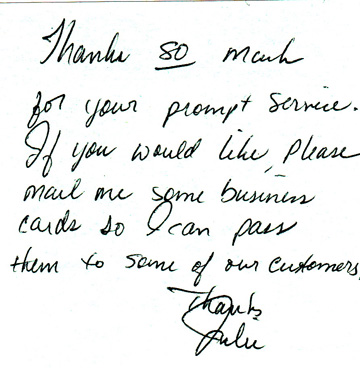 Thanks so much
for your prompt service.
If you would like, please
mail me some business
cards so I can pass
them to some of our customers,
Thanks
Julie